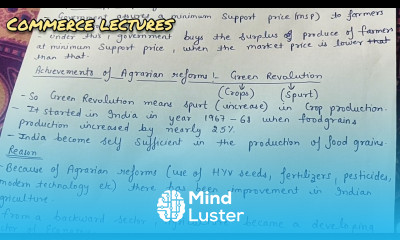 COMMERCE LECTURES
Government assures a minimum Support price (MSP) to farmers
Under this, government buys the surplus of produce of farmers
at minimum Support price, when the market price is lower that
than that.
Achievements of Agrarian reforms :- Green Revolution
(Crops) (Spurt)
- So Green Revolution means spurt (increase) in Crop production.
- It started in India in year 1967-68 when foodgrains
production increased by nearly 25%.
- India become self sufficient in the production of food grains.
Reason
Because of Agrarian reforms (use of HYV seeds, fertilizers, pesticides,
modern technology etc) there has been improvement in Indian
agriculture.
from a backward sector, become a developing
Mind
Luster